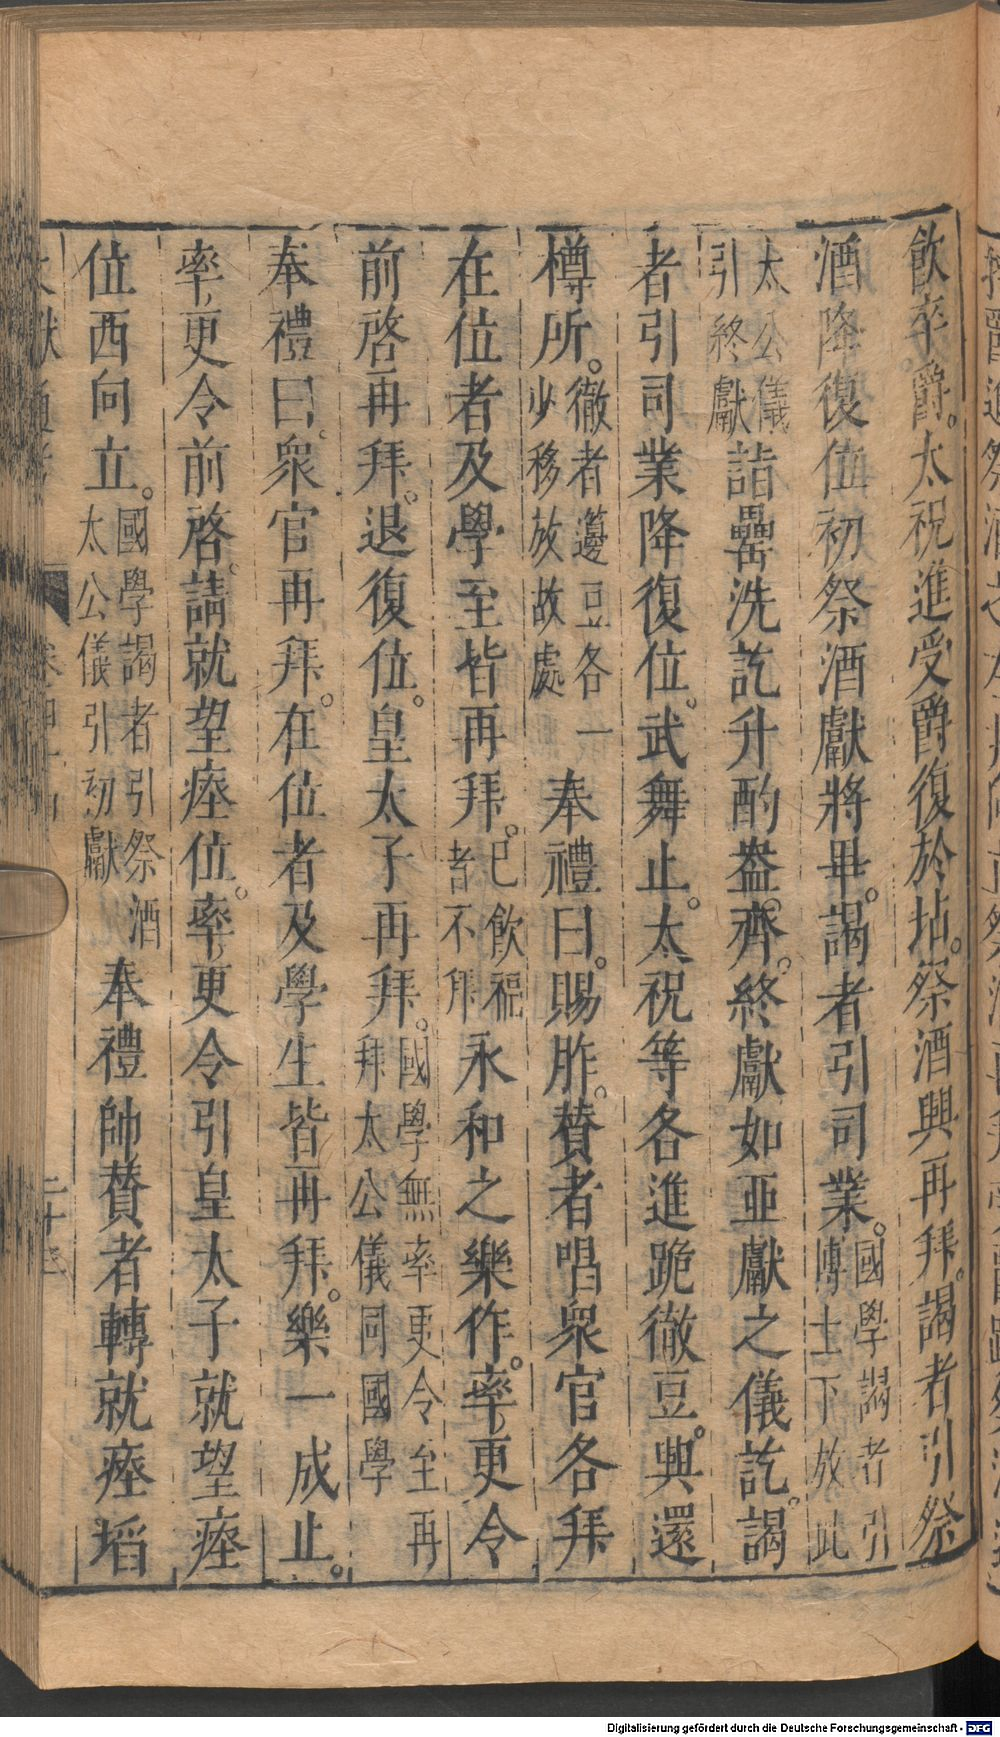 飲卒爵。太祝進受爵復於坫。祭酒興再拜。謁者引祭
酒降復位初祭酒獻將畢。謁者引司業。國學謁者引博士下放此
太公儀引終獻詣罍洗訖升酌盎齊。終獻如亞獻之儀訖。謁
者引司業降復位。武舞止。太祝等各進跪徹豆。興還
樽所。徹者籩豆各一少移於故處奉禮曰。賜胙。贊者唱眾官各拜
在位者及學至皆再拜。已飲福者不拜永和之樂作。率更令
前啓再拜。退復位。皇太子再拜。國學無率更令至再拜太公儀同國學
奉禮曰。眾官再拜。在位者及學生皆再拜。樂一成止。
率更令前啓。請就望瘞位。率更令引皇太子就望瘞
位西向立。國學謁者引祭酒太公儀引初獻奉禮帥贊者轉就瘞埳
Digitalisierung gefördert durch die Deutsche Forschungsgemeinschaft - DFG